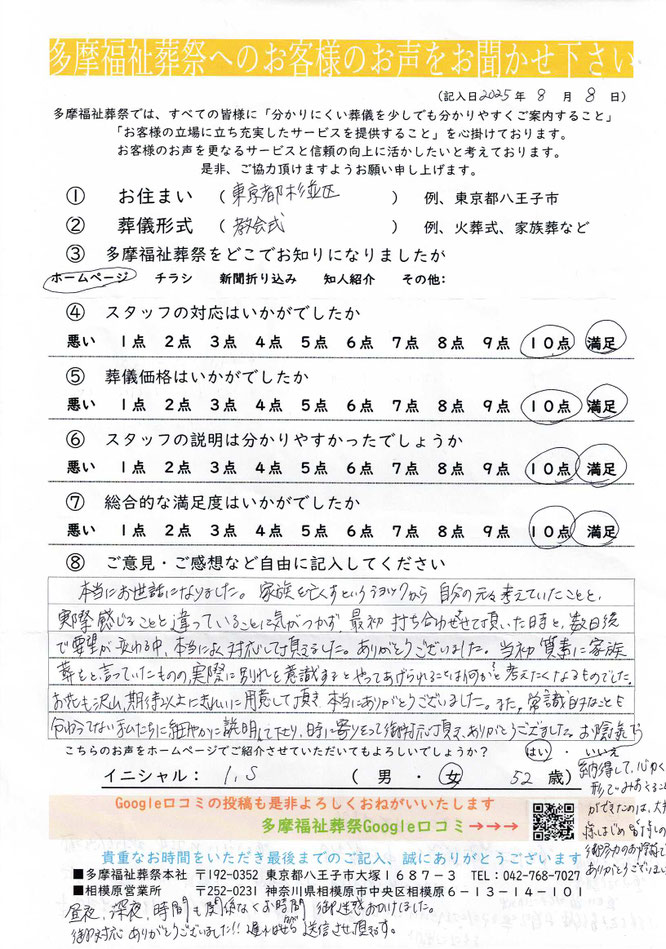 多摩福祉葬祭へのお客様のお声をお聞かせ下さい
(記入日2025年 8 月 8 日)
多摩福祉葬祭では、すべての皆様に「分かりにくい葬儀を少しでも分かりやすくご案内すること」
「お客様の立場に立ち充実したサービスを提供すること」を心掛けております。
お客様のお声を更なるサービスと信頼の向上に活かしたいと考えております。
是非、ご協力頂けますようお願い申し上げます。
① お住まい (東京都杉並区) 例、東京都八王子市
② 葬儀形式 (教会式) 例、火葬式、家族葬など
③ 多摩福祉葬祭をどこでお知りになりましたか
ホームページ チラシ 新聞折り込み 知人紹介 その他:
④ スタッフの対応はいかがでしたか
悪い 1点 2点 3点 4点 5点 6点 7点 8点 9点 10点 満足
⑤ 葬儀価格はいかがでしたか
悪い 1点 2点 3点 4点 5点 6点 7点 8点 9点 10点 満足
⑥ スタッフの説明は分かりやすかったでしょうか
悪い 1点 2点 3点 4点 5点 6点 7点 8点 9点 10点 満足
⑦ 総合的な満足度はいかがでしたか
悪い 1点 2点 3点 4点 5点 6点 7点 8点 9点 10点 満足
⑧ ご意見・ご感想など自由に記入してください
本当にお世話になりました。家族を亡くすというショックから 自分の元々考えていたことと、
実際感じることと違っていることに気がつかず、最初 打ち合わせさせて頂いた時と、数日後
で要望が変わる中、本当によく対応して頂きました。ありがとうございました。当初 質素に家族
葬をと言っていたものの、実際に別れを意識するとやってあげられることは何かと考えたくなるものでした。
お花も沢山、期待以上にきれいに用意して頂き 本当にありがとうございました。また、常識的なことも
分かってない私たちに細やかに説明して下さり、時に寄りそって御対応頂き、ありがとうございました。お陰気で
こちらのお声をホームページでご紹介させていただいてもよろしいでしょうか？ はい ・ いいえ
イニシャル: I.S ( 男 ・ 女 52 歳)
納得して、心かく
形でみおくること
ができたのは、大
様はじめ皆様の
御努力のお陰で
ありがとうございま
Google口コミの投稿も是非よろしくおねがいいたします
多摩福祉葬祭Google口コミ→→→
貴重なお時間をいただき最後までのご記入、誠にありがとうございます
■多摩福祉葬祭本社 〒192-0352 東京都八王子市大塚1687-3 TEL:042-768-7027
■相模原営業所 〒252-0231 神奈川県相模原市中央区相模原6-13-14-101
昼夜、深夜、時間も関係なくお時間 御迷惑おかけしました。
御対応 ありがとうございました!! 遅ればせながら送信させて頂きます。